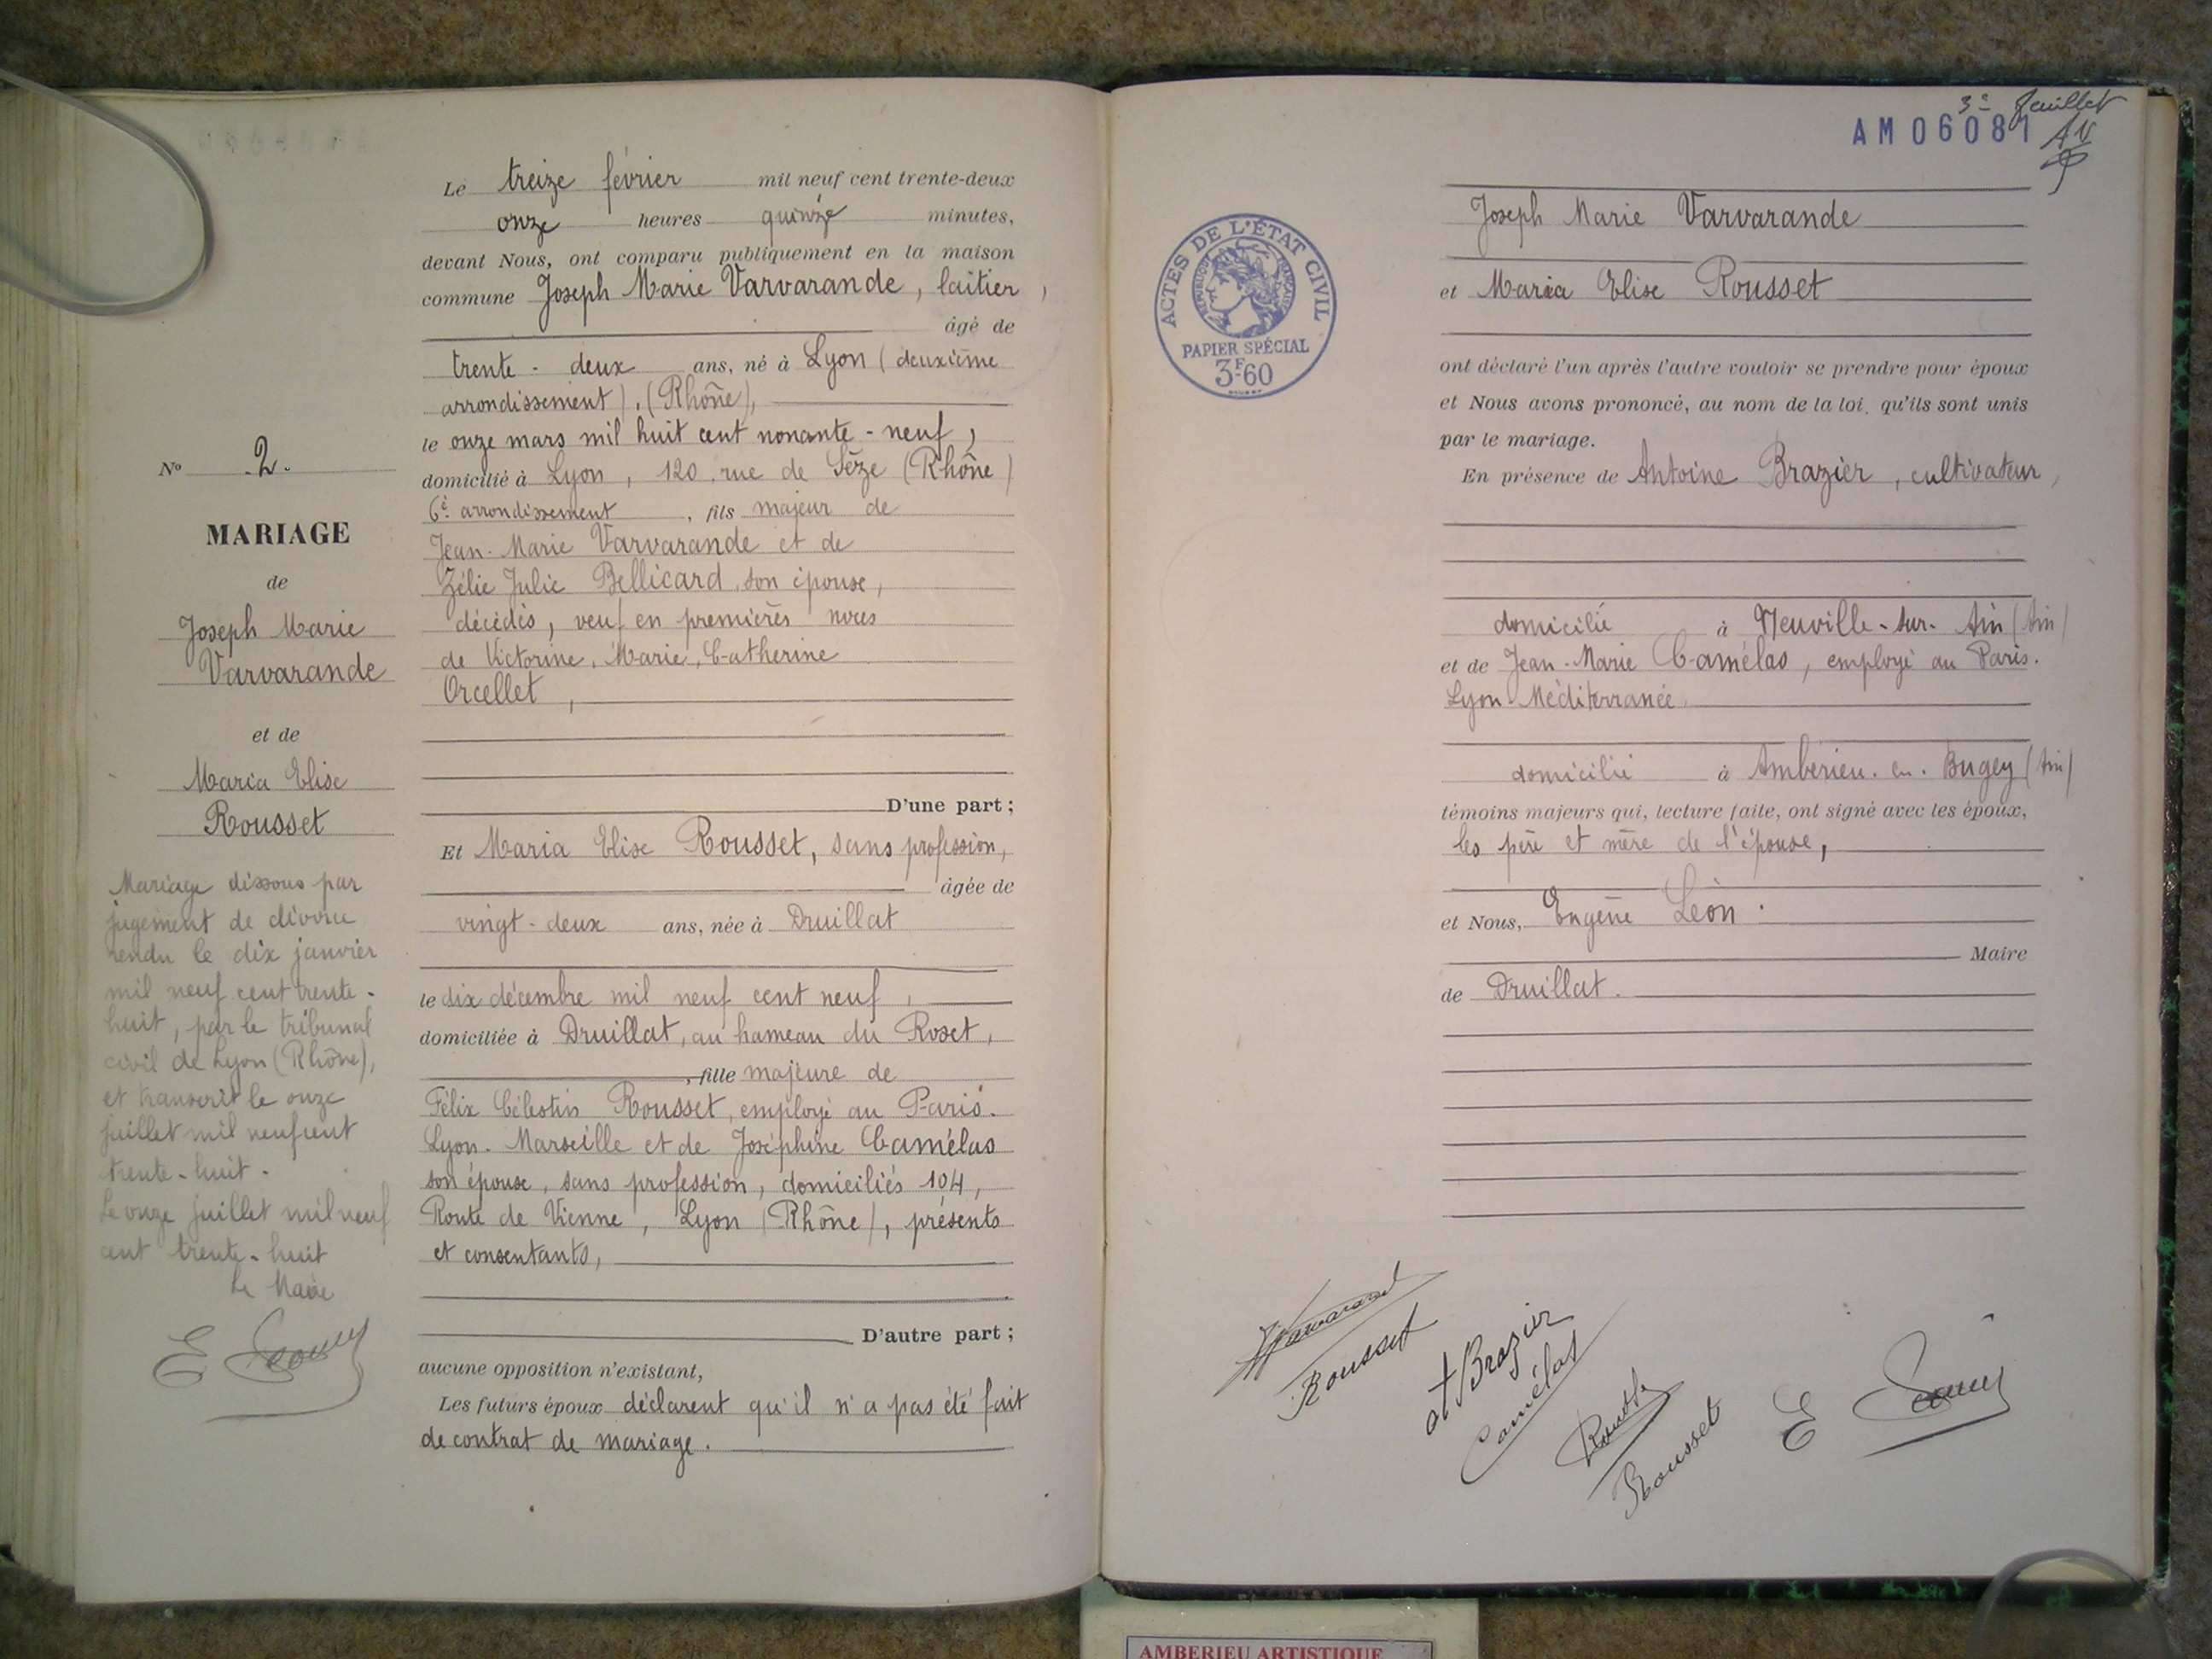 N° 2.
MARIAGE
de
Joseph Marie
Varvarande
et de
Maria Elise
Rousset
Mariage dissous par
jugement de divorce
rendu le dix janvier
mil neuf cent trente-
huit, par le tribunal
civil de Lyon (Rhône),
et transcrit le onze
juillet mil neuf cent
trente-huit.
Le onze juillet mil neuf
cent trente-huit
Le Maire
Le treize février mil neuf cent trente-deux
onze heures quinze minutes,
devant Nous, ont comparu publiquement en la maison
commune Joseph Marie Varvarande, laitier,
âgé de
trente-deux ans, né à Lyon (deuxième
arrondissement), (Rhône),
le onze mars mil huit cent nonante-neuf,
domicilié à Lyon, 120, rue de Sèze (Rhône)
6è arrondissement, fils majeur de
Jean-Marie Varvarande et de
Zélie Julie Bellicard, son épouse,
décédés, veuf en premières noces
de Victorine, Marie, Catherine
Orcellet,
D'une part;
Et Maria Elise Rousset, sans profession,
âgée de
vingt-deux ans, née à Druillat
le dix décembre mil neuf cent neuf,
domiciliée à Druillat, au hameau du Roset,
, fille majeure de
Félix Célestin Rousset, employé au Paris-
Lyon-Marseille et de Joséphine Camélas
son épouse, sans profession, domiciliés 104,
Route de Vienne, Lyon (Rhône), présents
et consentants,
D'autre part;
aucune opposition n'existant,
Les futurs époux déclarent qu'il n'a pas été fait
de contrat de mariage.
3è feuillet
AM06081
ACTES DE L'ÉTAT CIVIL
RÉPUBLIQUE FRANÇAISE
PAPIER SPÉCIAL
3F60
Joseph Marie Varvarande
et Maria Elise Rousset
ont déclaré l'un après l'autre vouloir se prendre pour époux
et Nous avons prononcé, au nom de la loi, qu'ils sont unis
par le mariage.
En présence de Antoine Brazier, cultivateur,
domicilié à Neuville-sur-Ain (Ain)
et de Jean-Marie Camélas, employé au Paris-
Lyon Méditerranée
domicilié à Ambérieu-en-Bugey (Ain)
témoins majeurs qui, lecture faite, ont signé avec les époux,
les père et mère de l'épouse,
et Nous, Eugène Léon.
Maire
de Druillat.
Rousset
at Brazier
Camélas
Rousset
AMBERIEU ARTISTIQUE